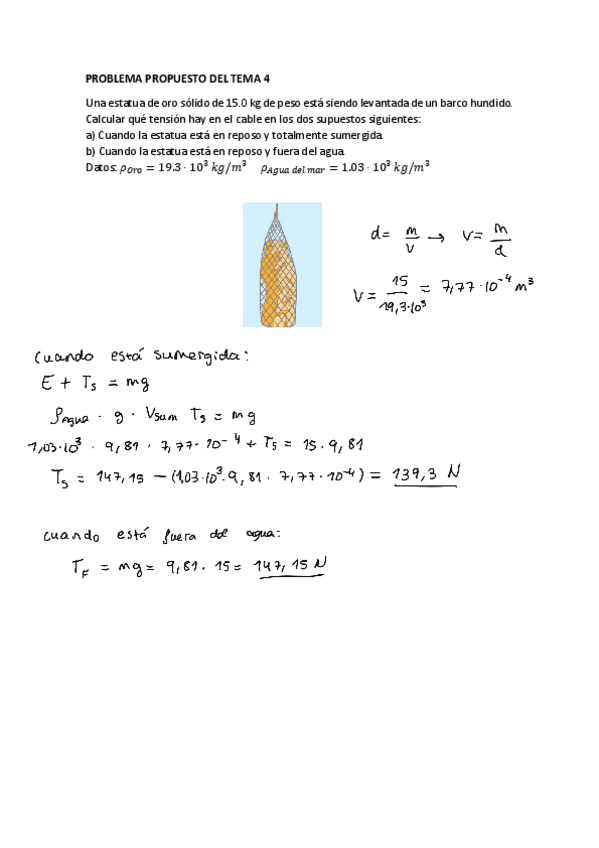 PROBLEMA PROPUESTO DEL TEMA 4
Una estatua de oro sólido de 15.0 kg de peso está siendo levantada de un barco hundido.
Calcular qué tensión hay en el cable en los dos supuestos siguientes:
a) Cuando la estatua está en reposo y totalmente sumergida.
b) Cuando la estatua está en reposo y fuera del agua.
Datos: ρ_Oro = 19.3 · 10³ kg/m³ ρ_Agua del mar = 1.03 · 10³ kg/m³
d = m/v → V = m/d
V = 15/19,3·10³ = 7,77·10⁻⁴ m³
Cuando está sumergida:
E + Ts = mg
ρAgua · g · Vsum Ts = mg
1,03·10³ · 9,81 · 7,77·10⁻⁴ + Ts = 15·9,81
Ts = 147,15 − (1,03·10³·9,81·7,77·10⁻⁴) = 139,3 N
cuando está fuera del agua:
TF = mg = 9,81·15 = 147,15 N